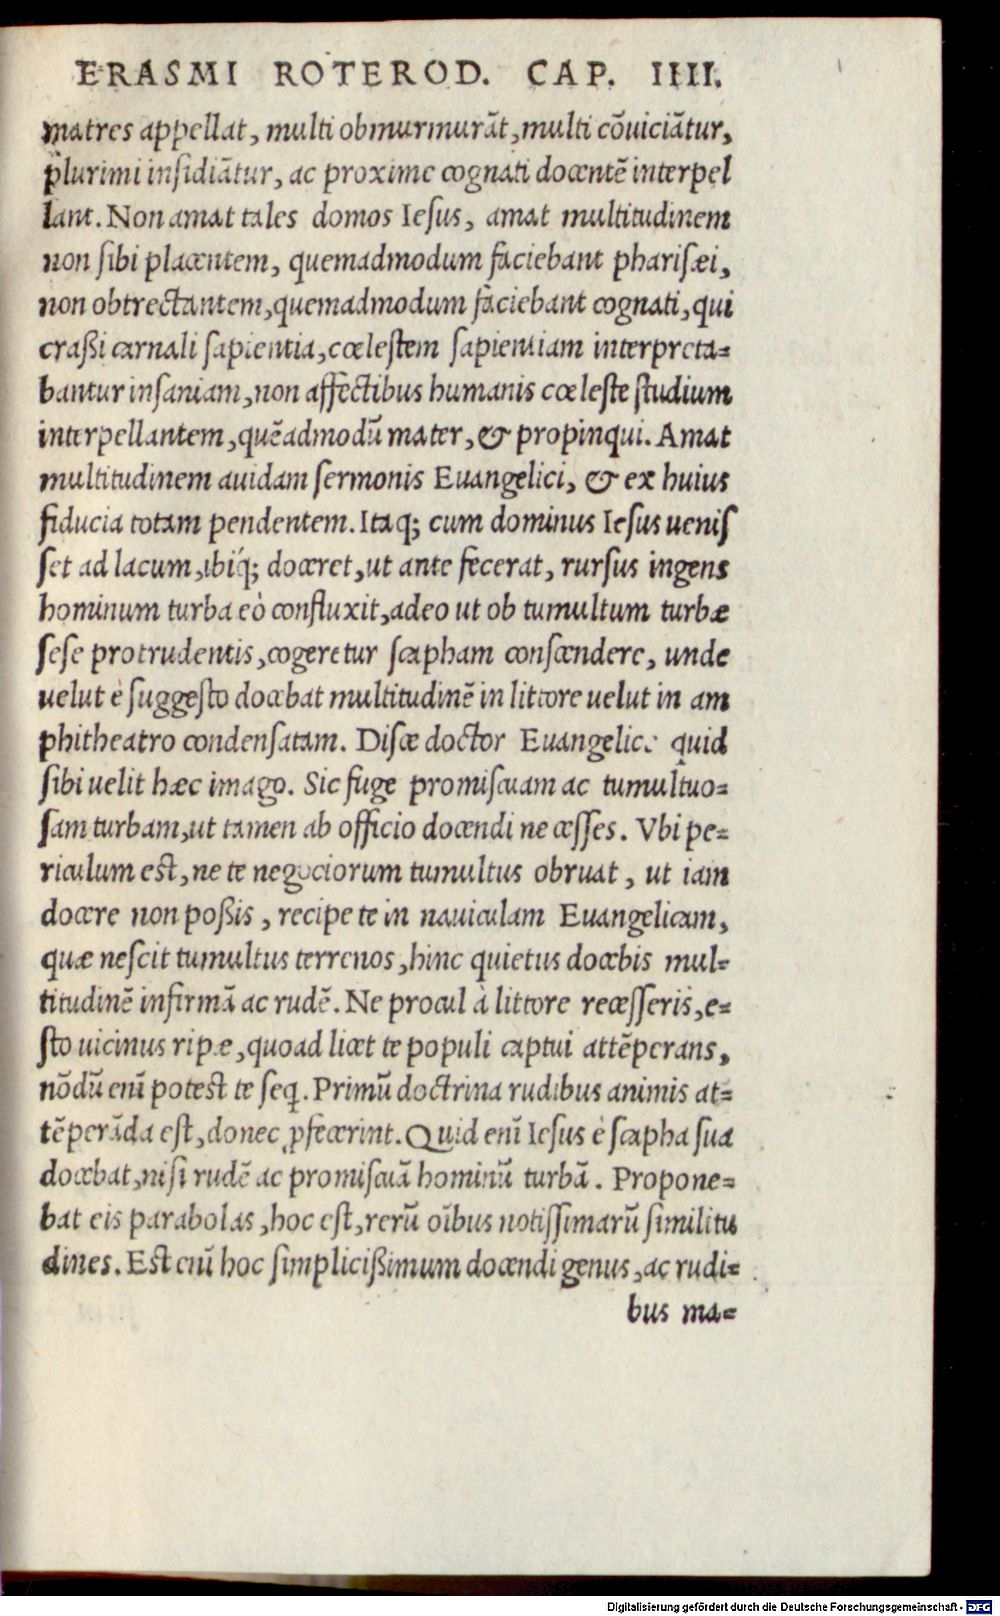 ERASMI ROTEROD. CAP. IIII.
matres appellat, multi obmurmurāt, multi cōuiciātur,
plurimi insidiātur, ac proxime cognati docentē interpel
lant. Non amat tales domos Iesus, amat multitudinem
non sibi placentem, quemadmodum faciebant pharisæi,
non obtrectantem, quemadmodum faciebant cognati, qui
craßi carnali sapientia, cœlestem sapientiam interpreta=
bantur insaniam, non affectibus humanis cœleste studium
interpellantem, quēadmodū mater, & propinqui. Amat
multitudinem auidam sermonis Euangelici, & ex huius
fiducia totam pendentem. Itaq; cum dominus Iesus uenis
set ad lacum, ibiq́; doceret, ut ante fecerat, rursus ingens
hominum turba eò confluxit, adeo ut ob tumultum turbæ
sese protrudentis, cogeretur scapham conscendere, unde
uelut è suggesto docebat multitudinē in littore uelut in am
phitheatro condensatam. Disce doctor Euangelice quid
sibi uelit hæc imago. Sic fuge promiscuam ac tumultuo=
sam turbam, ut tamen ab officio docendi ne cesses. Vbi pe=
riculum est, ne te negociorum tumultus obruat, ut iam
docere non poßis, recipe te in nauiculam Euangelicam,
quæ nescit tumultus terrenos, hinc quietus docebis mul=
titudinē infirmā ac rudē. Ne procul à littore recesseris, e=
sto uicinus ripæ, quoad licet te populi captui attēperans,
nōdū enī potest te seq̄. Primū doctrina rudibus animis at=
tēperāda est, donec ꝓfecerint. Quid enī Iesus è scapha sua
docebat, nisi rudē ac promiscuā hominū turbā. Propone=
bat eis parabolas, hoc est, rerū oībus notissimarū similitu
dines. Est enī hoc simplicißimum docendi genus, ac rudi=
bus ma=
Digitalisierung gefördert durch die Deutsche Forschungsgemeinschaft - DFG